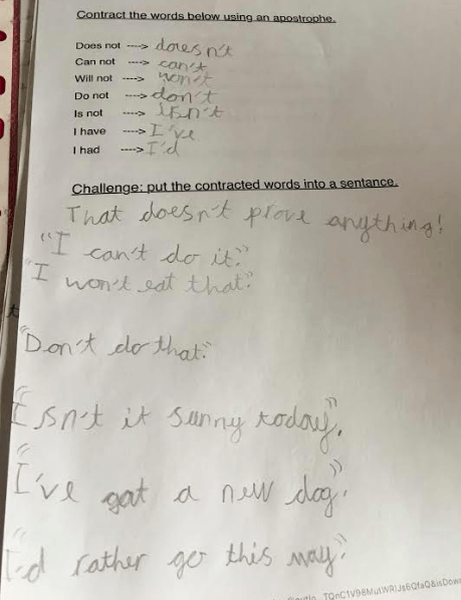 Contract the words below using an apostrophe.
Does not ----> doesn't
Can not ----> can't
Will not ----> won't
Do not ----> don't
Is not ----> isn't
I have ----> I've
I had ----> I'd
Challenge: put the contracted words into a sentence.
That doesn't prove anything!
"I can't do it."
"I won't eat that."
"Don't do that."
"Isn't it sunny today".
"I've got a new dog".
"I'd rather go this way".